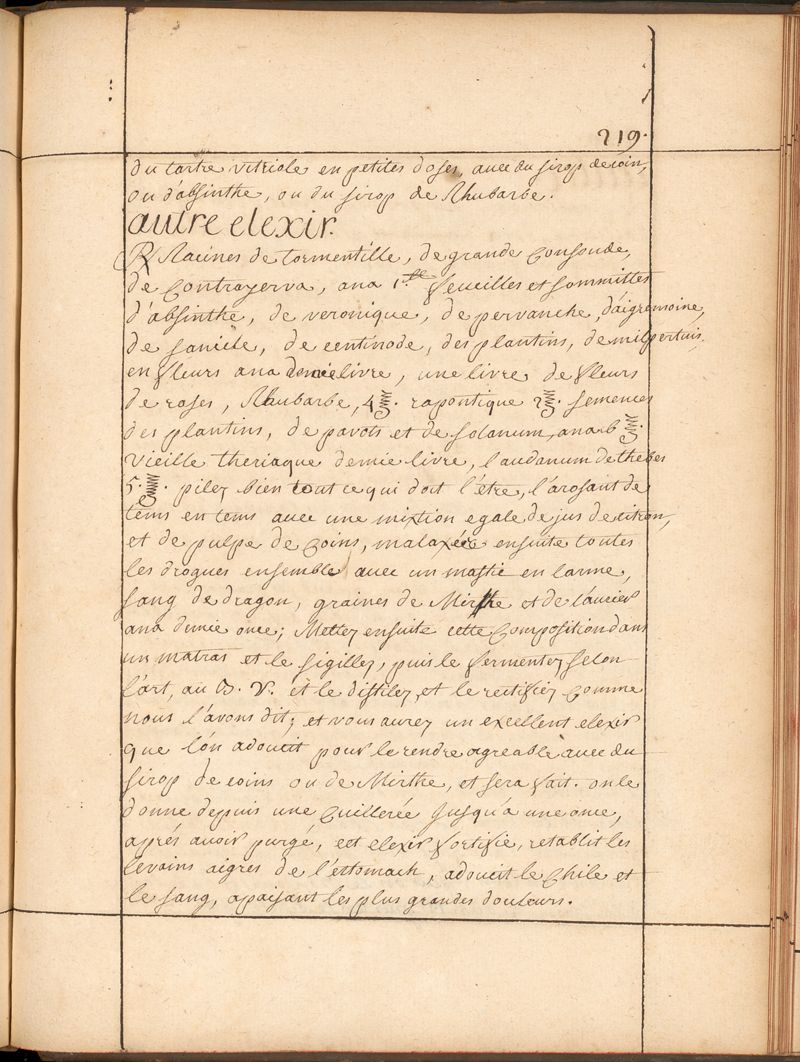 219.
du tartre vitriole en petites doses, avec du sirop de coin,
ou d'absinthe, ou du sirop de Rhubarbe.
autre elexir.
℞ Racines de tormentille, de grande Consoude,
de Contrayerva, ana 1.ll feueilles et sommittes
d'absinthe, de veronique, de pervanche, d'aigremoine,
de sanicle, de centinode, des plantins, de milpertuis,
en fleurs ana demie livre, une livre de fleurs
de roses, Rhubarbe, 4 ℥. rapontique 2 ℥. semences
des plantins, de pavots et de solanum, ana 6 ℥.
vieille theriaque demie livre, laudanum de thebes
5. ℥. pilez bien tout ce qui doit l'être, l'arosant de
tems en tems avec une mixtion egale de jus de citron,
et de pulpe de Coins, malaxée ensuite toutes
les drogues ensemble avec un mastic en larme,
sang de dragon, graines de Mirthe et de laurier
ana demie once; Mettez ensuite cette Composition dans
un matras et le sigillez, puis le fermentez selon
l'art, au B. V. et le distilez, et le rectifiez Comme
nous l'avons dit; et vous aurez un excellent elexir
que l'on adoucit pour le rendre agreable avec du
sirop de coins ou de Mirthe, et sera fait. on le
donne depuis une Cuillerée jusqu'a une once,
aprés avoir purgé, cet elexir fortifie, retablit les
levains aigres de l'estomach, adoucit le Chile et
le sang, apaisant les plus grandes douleurs.